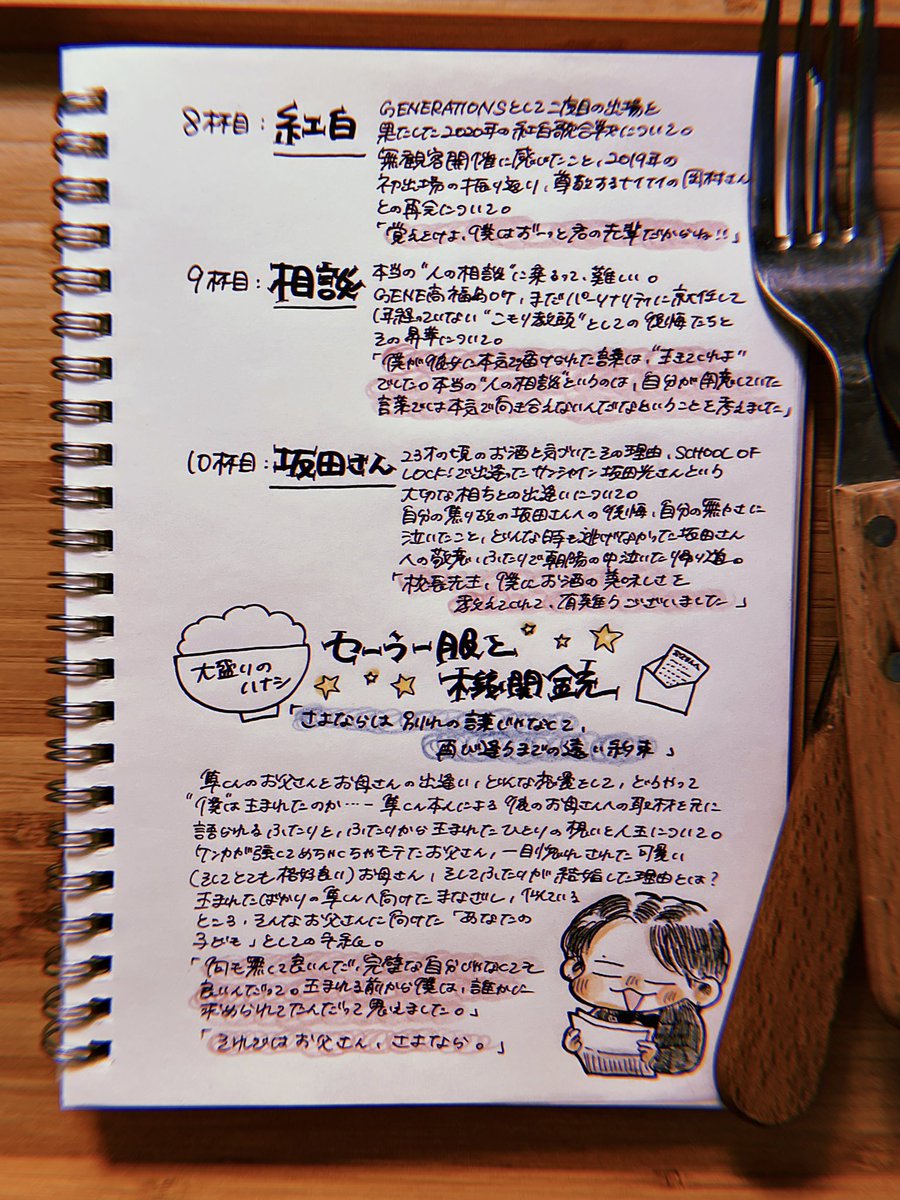 8杯目：紅白
GENERATIONSとして二度目の出場を
果たした2020年の紅白歌合戦について。
無観客開催に感じたこと、2019年の
初出場の振り返り、尊敬するナイナイの岡村さん
との再会について。
「覚えとけよ、僕はずーっと君の先輩だからね!!」
9杯目：相談
本当の“人の相談”に乗るって、難しい。
GENE高福島ロケ、まだパーソナリティに就任して
1年経っていない“こもり教頭”としての後悔たちと
その昇華について。
「僕が彼女に本気で届けられた言葉は、“生きてくれよ”
でした。本当の“人の相談”というのは、自分が用意していた
言葉では本気で向き合えないんだなということを考えました」
10杯目：坂田さん
23才の頃のお酒と近づいたその理由、SCHOOL OF
LOCK!で出逢ったサンシャイン坂田光さんという
大切な相方との出逢いについて。
自分の焦り故の坂田さんへの後悔、自分の無力さに
泣いたこと、どんな時も逃げなかった坂田さん
への敬意、ふたりで朝陽の中泣いた帰り道。
「校長先生、僕にお酒の美味しさを
教えてくれて、有難うございました」
大盛りの
ハナシ
セーラー服と
機関銃
「さよならは別れの言葉じゃなくて、
再び逢うまでの遠い約束」
隼くんのお父さんとお母さんの出逢い、どんな恋愛をして、どうやって
“僕”は生まれたのか…ー隼くん本人による後のお母さんへの取材を元に
語られるふたりと、ふたりから生まれたひとりの想いと人生について。
ケンカが強くてめちゃくちゃモテたお父さん、一目惚れされた可愛い
(そしてとても格好良い)お母さん、そしてふたりが結婚した理由とは？
生まれたばかりの隼くんへ向けたまなざし、似ている
ところ、そんなお父さんに向けた「あなたの
子ども」としての手紙。
「何も無くて良いんだ、完璧な自分じゃなくても
良いんだって。生まれる前から僕は、誰かに
求められてたんだって思えました。」
「それではお父さん、さよなら。」